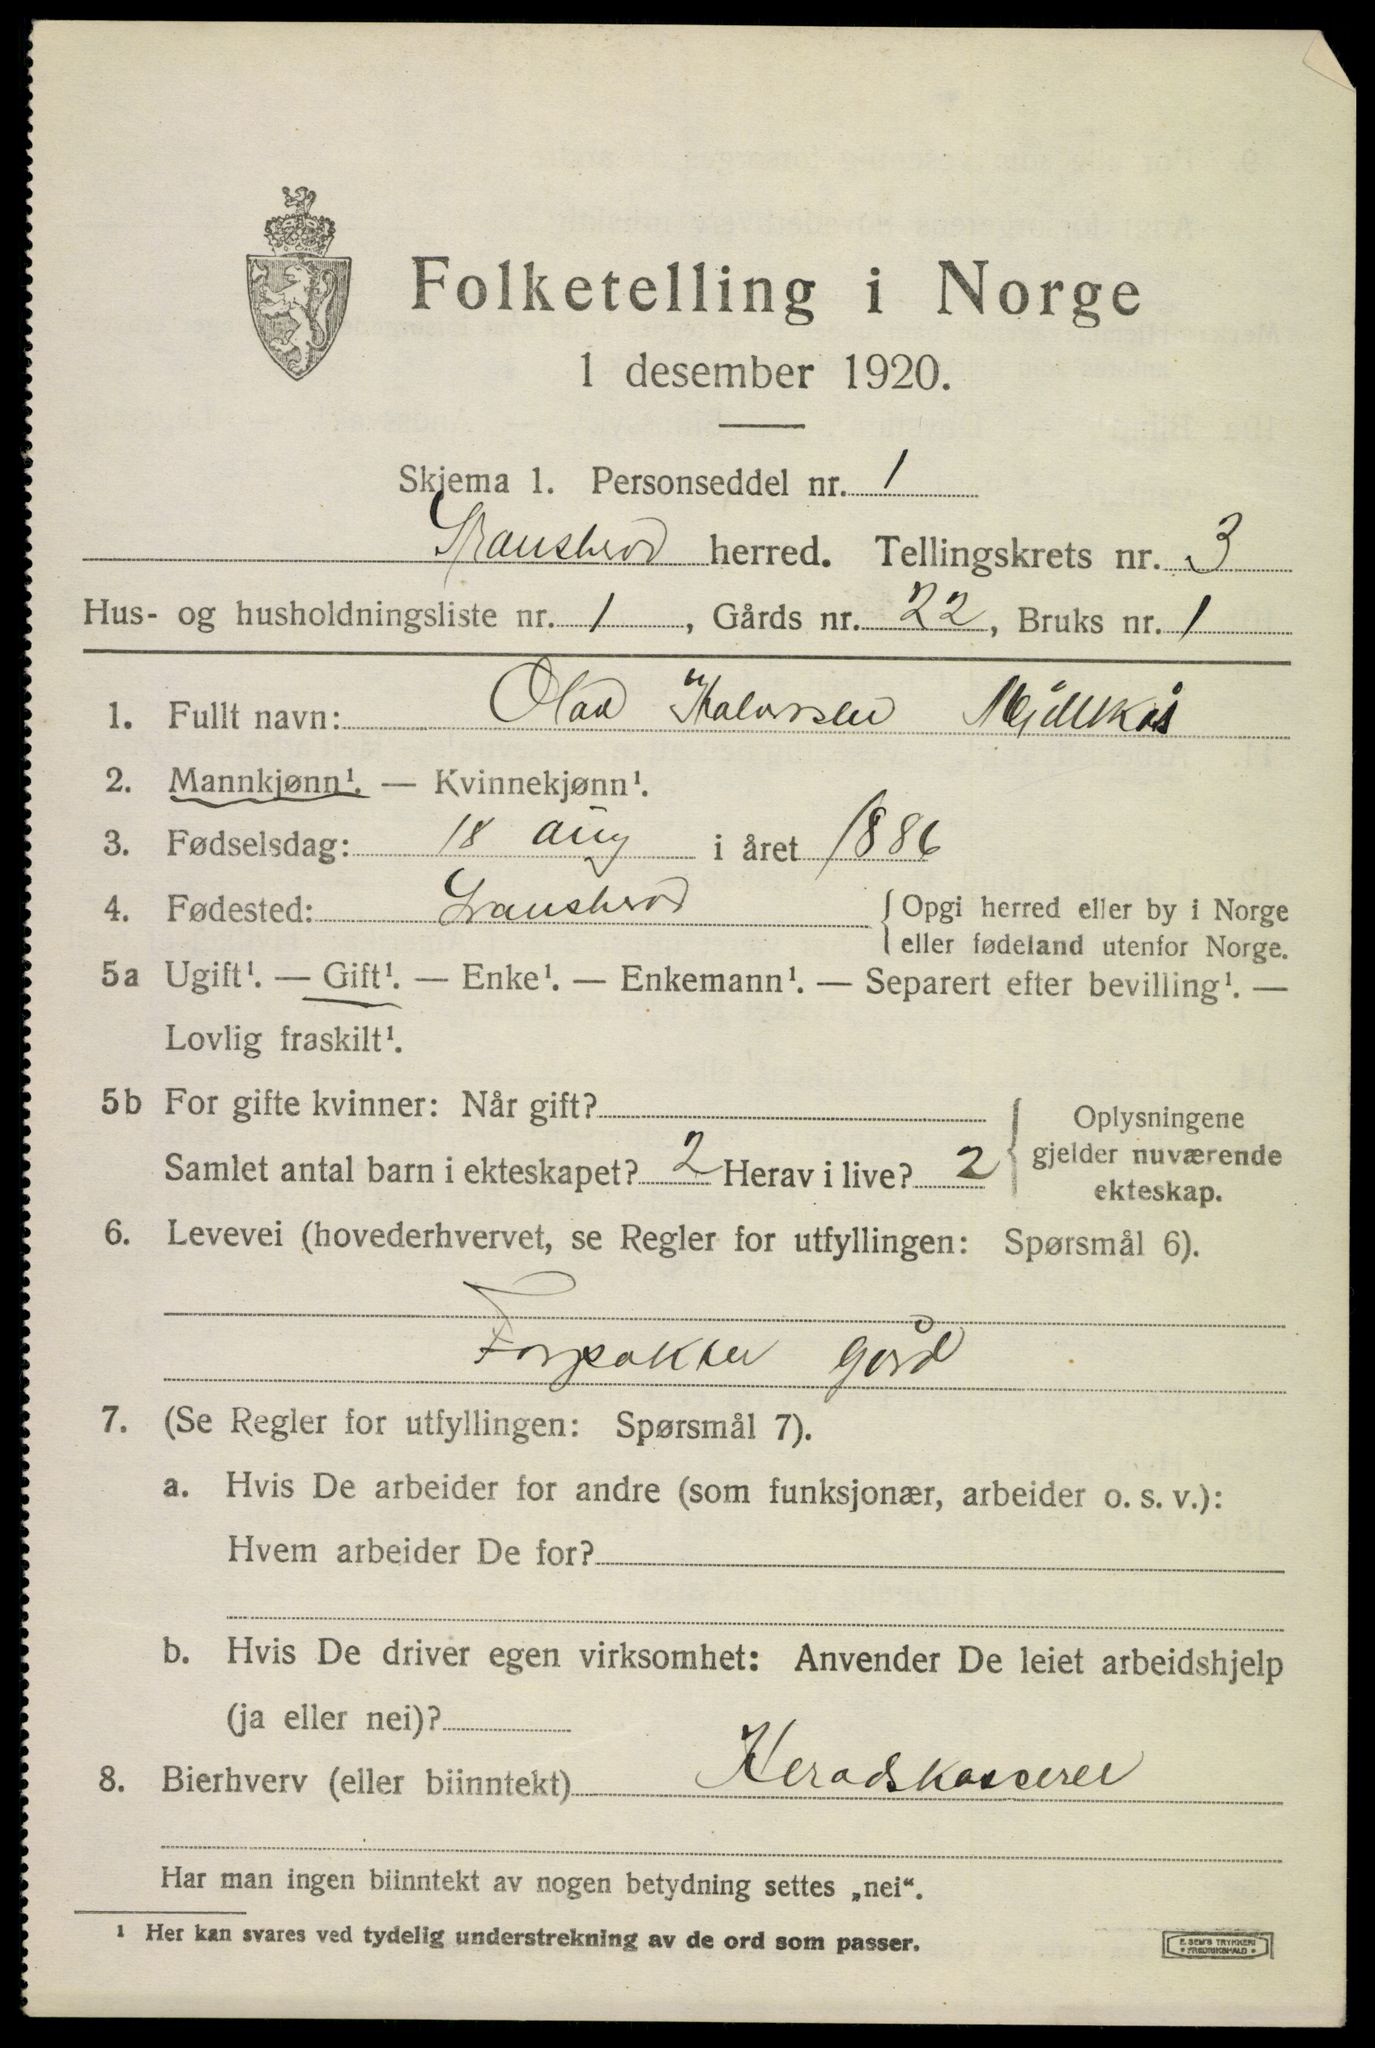 Folketelling i Norge
1 desember 1920.
Skjema 1. Personseddel nr. 1
Gransherad herred. Tellingskrets nr. 3
Hus- og husholdningsliste nr. 1, Gårds nr. 22, Bruks nr. 1
1. Fullt navn: Olav Halvorsen
2. Mannkjønn¹. — Kvinnekjønn¹.
3. Fødselsdag: 18 aug i året 1886
4. Fødested: Gransherad { Opgi herred eller by i Norge
eller fødeland utenfor Norge.
5a Ugift¹. — Gift¹. — Enke¹. — Enkemann¹. — Separert efter bevilling¹. —
Lovlig fraskilt¹.
5b For gifte kvinner: Når gift?
Samlet antal barn i ekteskapet? 2 Herav i live? 2
{ Oplysningene
gjelder nuværende
ekteskap.
6. Levevei (hovederhvervet, se Regler for utfyllingen: Spørsmål 6).
Forpakter gård
7. (Se Regler for utfyllingen: Spørsmål 7).
a. Hvis De arbeider for andre (som funksjonær, arbeider o. s. v.):
Hvem arbeider De for?
b. Hvis De driver egen virksomhet: Anvender De leiet arbeidshjelp
(ja eller nei)?
8. Bierhverv (eller biinntekt) Heradskasserer
Har man ingen biinntekt av nogen betydning settes „nei“.
¹ Her kan svares ved tydelig understrekning av de ord som passer.
E. SEM'S TRYKKERI
FREDRIKSHALD